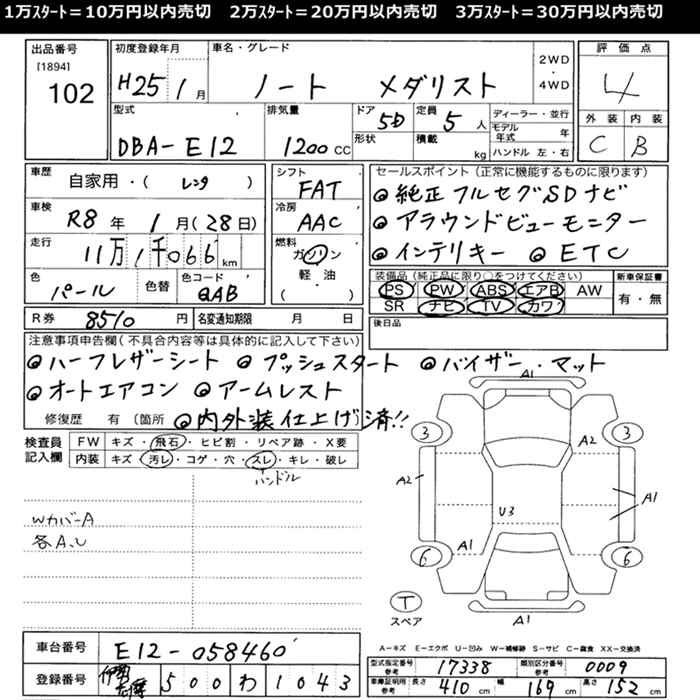 1万ｽﾀｰﾄ＝10万円以内売切　2万ｽﾀｰﾄ＝20万円以内売切　3万ｽﾀｰﾄ＝30万円以内売切
出品番号 [1894] 102
初度登録年月 H25 / 1月
車名・グレード ノート メダリスト
2WD・4WD
評価点 4
型式 DBA-E12
排気量 1200 CC
ドア 5D 形状
定員 5人 積載 kg
ディーラー・並行
モデル年式 年
ハンドル 左・右
外装 C 内装 B
車歴 自家用・( レンタ )
シフト FAT
セールスポイント (正常に機能するものに限ります)
◎純正フルセグSDナビ
◎アラウンドビューモニター
◎インテリキー ◎ETC
車検 R8年 1月 (28日)
冷房 AAC
走行 11万1千066km
燃料 ガソリン 軽油 (・)
色 パール 色替 色コード QAB
装備品 (純正品に限り○をつけてください)
PS PW ABS エアB AW
SR ナビ TV カワ
新車保証書 有・無
R券 8510円 名変通知期限 月 日
後日品
注意事項申告欄 (不具合内容等は具体的に記入して下さい)
◎ハーフレザーシート ◎プッシュスタート ◎バイザー・マット
◎オートエアコン ◎アームレスト
修復歴 有 (箇所 ◎内外装仕上げ済!!
検査員記入欄
FW キズ・飛石・ヒビ割・リペア跡・X要
内装 キズ・汚レ・コゲ・穴・スレ・キレ・破レ
ハンドル
Wカバー A
各A,U
A1
3 3
A2
A2
A1
U3
A1
6 6
T
スペア
A1
A－キズ E－エクボ U－凹み W－補修跡 S－サビ C－腐食 XX－交換済
車台番号 E12-058460
登録番号 500 わ 1043
型式指定番号 参考 17338 類別区分番号 参考 0009
車庫証明用 参考 長さ 410 cm 幅 169 cm 高さ 152 cm